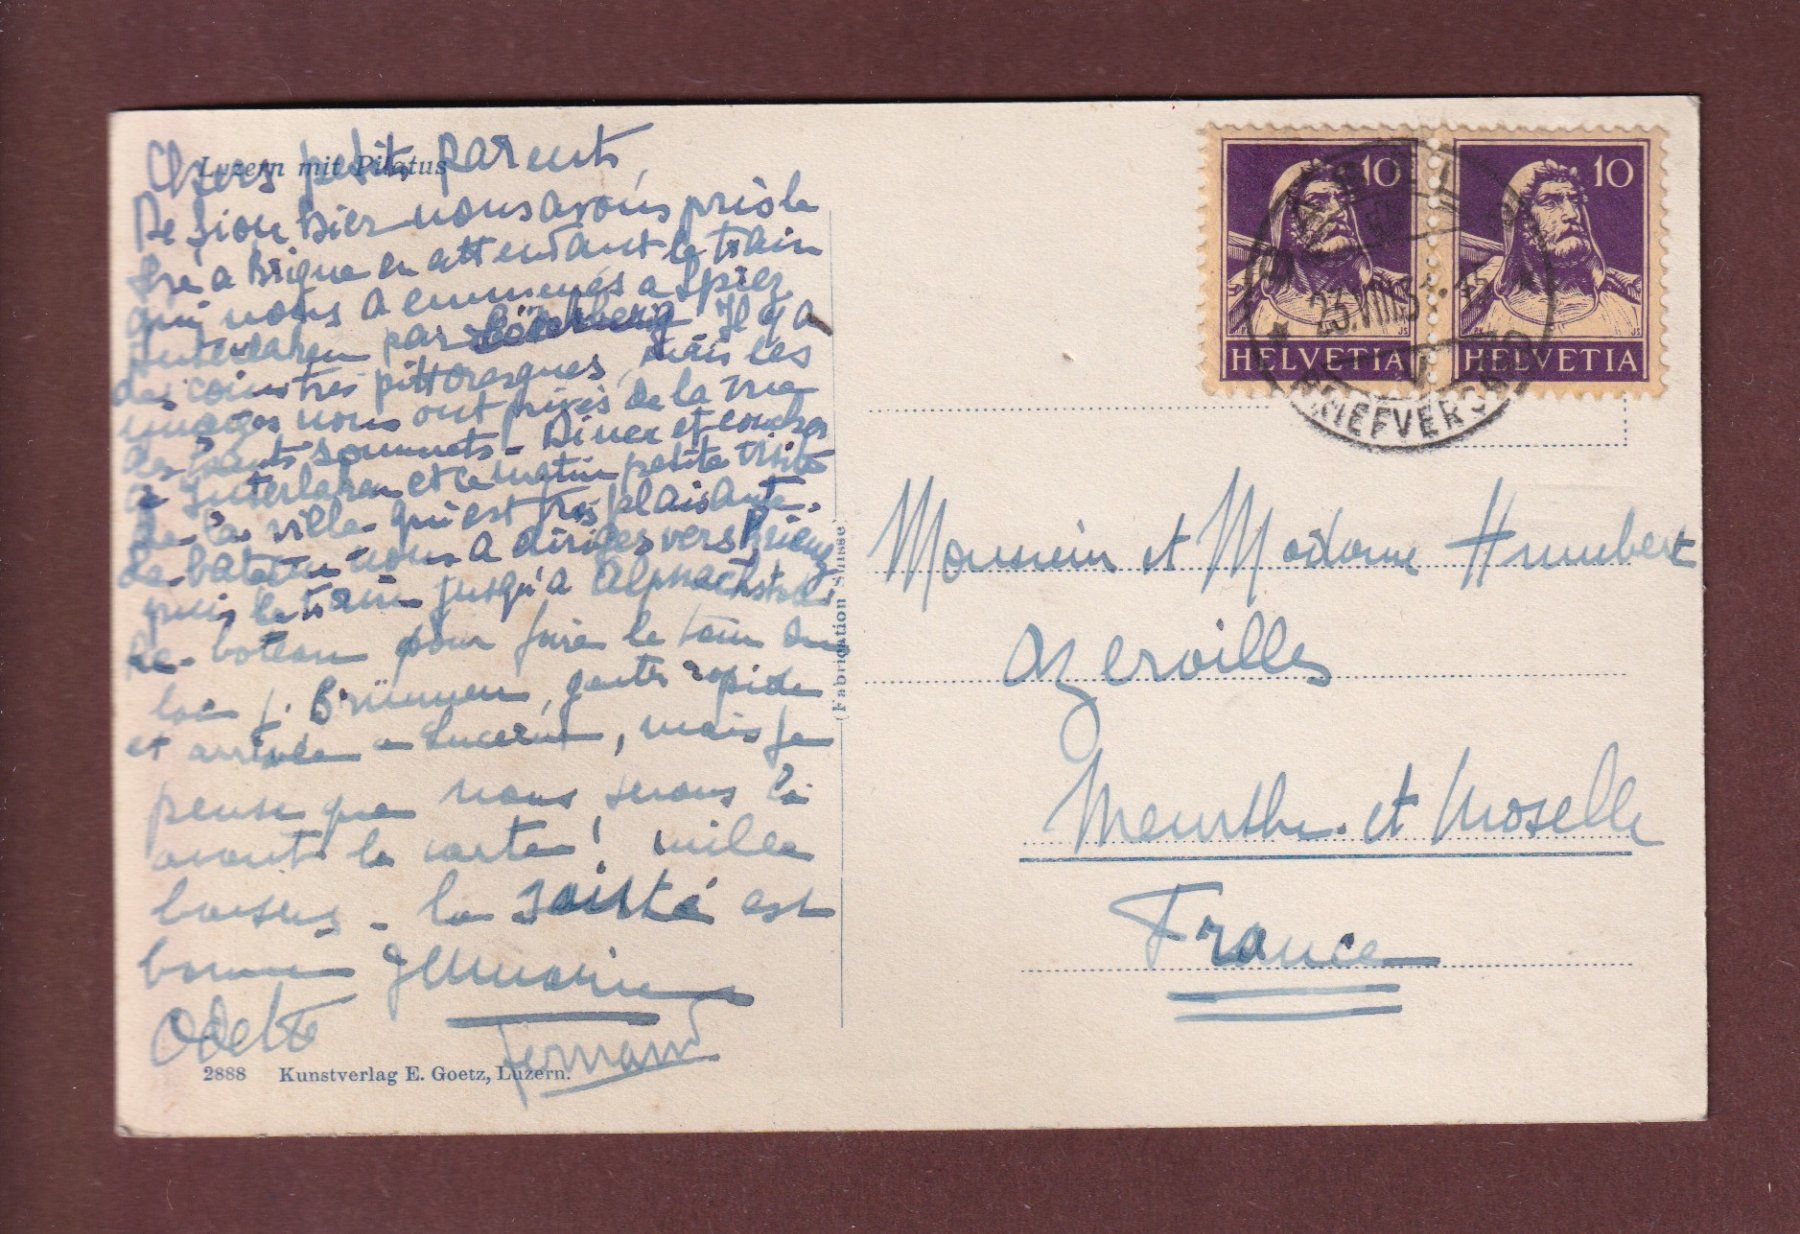 Luzern mit Pilatus
Chers petits parents
De Sion hier nous avons pris le
à Brigue en attendant le train
qui nous a emmenés a Spiez
Interlaken par Il y a
des coins très pittoresques, mais les
nuages nous ont privés de la vue
des hauts sommets - Diner et coucher
à Interlaken et ce matin petite visite
de la ville qui est très plaisante.
Le bateau nous a dirigés vers Brienz
puis le train jusqu'à Alpnachstad
Le bateau pour faire le tour du
lac p. Brünnen, rapide
et arrivée a Lucerne, mais je
pense que nous serons là
avant la carte! mille
baisers - la santé est
bonne Germaine
Odette
Fernand
2888 Kunstverlag E. Goetz, Luzern.
(Fabrication Suisse)
10 10
HELVETIA HELVETIA
23.VIII.3
BRIEFVERSAND
Monsieur et Madame Humbert
Azerailles
Meurthe et Moselle
France